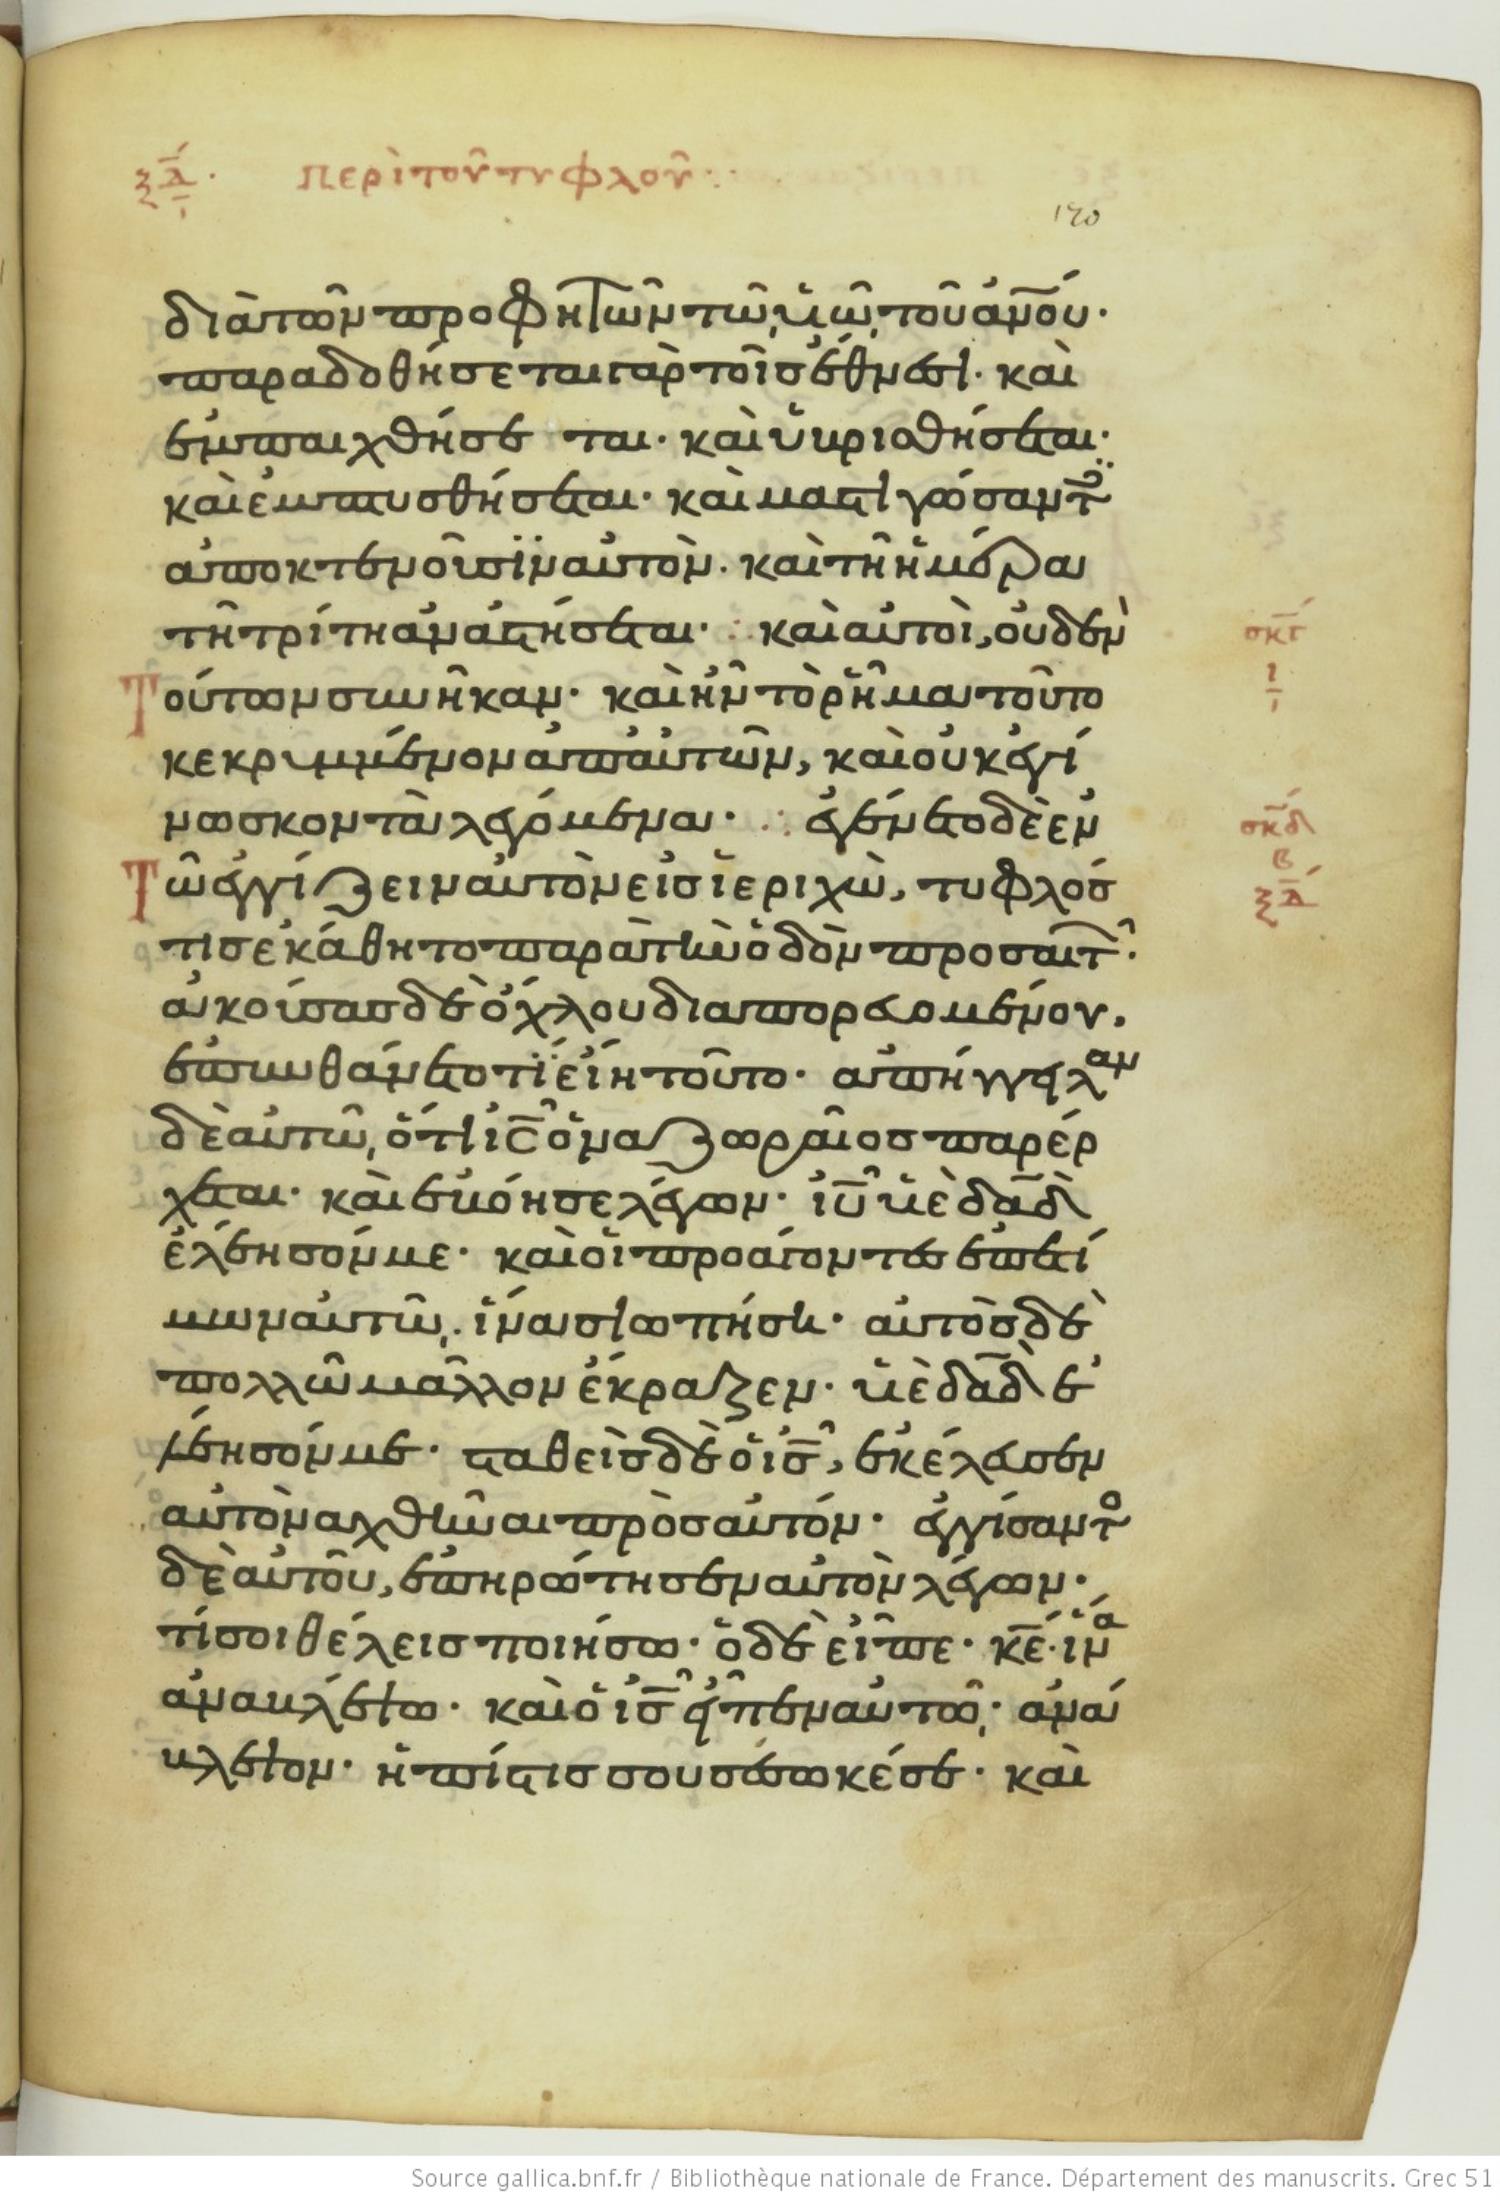 ξδ· περὶ τοῦ τυφλοῦ·
διὰ τῶν προφητῶν τῶ υἱῶ τοῦ ἀνου·
παραδοθήσεται γὰρ τοῖς ἔθνεσι· καὶ
ἐμπαιχθήσεται· καὶ ὑβρισθήσεται·
καὶ ἐμπτυσθήσεται· καὶ μαστιγώσαντ
ἀποκτενοῦσϊν αὐτὸν· καὶ τῆ ἡμέρα
τῆ τρίτη ἀναστήσεται· καὶ αὐτοὶ, οὐδὲν
Τούτων συνῆκαν· καὶ ἦν τὸ ρῆμα τοῦτο
κεκρυμμένον ἀπ' αὐτῶν, καὶ οὐκ ἐγί
σκγ
ι
νωσκον τὰ λεγόμενα· ἐγένετο δὲ ἐν
σκδ
β
ξδ
Τῶ ἐγγίζειν αὐτὸν εἰς ἱεριχὼ, τυφλός
τις ἐκάθητο παρὰ τὴν ὁδὸν προσαιτ·
ἀκούσας δὲ ὄχλου διαπορευομένου,
ἐπυνθάνετο τί εἴη τοῦτο· ἀπήγγειλαν
δὲ αὐτῶ, ὅτι ις ὁ ναζωραῖος παρέρ
χεται· καὶ ἐβόησε λέγων· ιυ υἱὲ δαδ
ἐλέησόν με· καὶ οἱ προάγοντες ἐπετί
μων αὐτῶ, ἵνα σιωπήση· αὐτὸς δὲ
πολλῶ μᾶλλον ἔκραζεν· υἱὲ δαδ ἐ
λέησόν με· σταθεὶς δὲ ὁ ις, ἐκέλευσεν
αὐτὸν ἀχθῆναι πρὸς αὐτόν· ἐγγίσαντο
δὲ αὐτοῦ, ἐπηρώτησεν αὐτὸν λέγων·
τί σοι θέλεις ποιήσω· ὁ δὲ εἶπε· κε· ἵνα
ἀναβλέψω· καὶ ὁ ις εἶπεν αὐτῶ· ἀνά
βλεψον· ἡ πίστις σου σέσωκέ σε· καὶ
Source gallica.bnf.fr / Bibliothèque nationale de France. Département des manuscrits. Grec 51